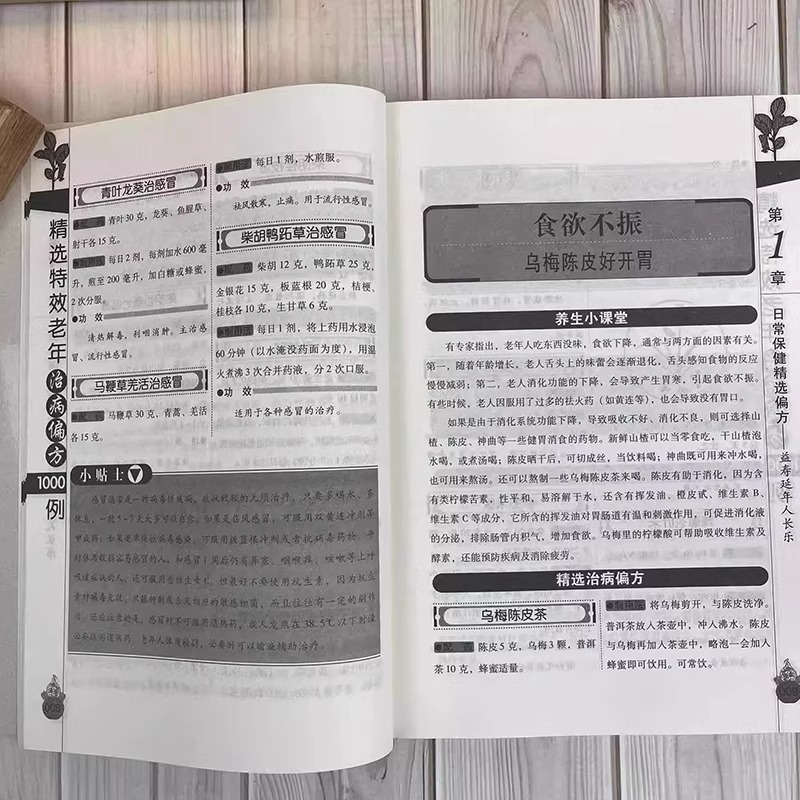 精选特效老年治病偏方1000例
青叶龙葵治感冒
●配 药 青叶30克，龙葵、鱼腥草、
射干各15克。
●制用法 每日2剂，每剂加水600毫
升，煎至200毫升，加白糖或蜂蜜，
2次分服。
●功 效
清热解毒，利咽消肿。主治感
冒、流行性感冒。
马鞭草羌活治感冒
●配 药 马鞭草30克，青蒿、羌活
各15克。
●制用法 每日1剂，水煎服。
●功 效
祛风散寒，止痛。用于流行性感冒。
柴胡鸭跖草治感冒
●配 药 柴胡12克，鸭跖草25克，
金银花15克，板蓝根20克，桔梗、
桂枝各10克，生甘草6克。
●制用法 每日1剂，将上药用水浸泡
60分钟（以水淹没药面为度），用温
火煮沸3次合并药液，分2次口服。
●功 效
适用于各种感冒的治疗。
小贴士
感冒通常是一种病毒性疾病，症状较轻的无须治疗，只要多喝水、多
休息，一般5~7天大多可以自愈。如果是伤风感冒，可服用双黄连冲剂等
中成药；如果是单纯性病毒感染，可服用板蓝根冲剂或者抗病毒药物。
吸道症状的人，还可服用
008
第1章
日常保健精选偏方——益寿延年人长乐
食欲不振
乌梅陈皮好开胃
养生小课堂
有专家指出，老年人吃东西没味，食欲下降，通常与两方面的因素有关。
第一，随着年龄增长，老人舌头上的味蕾会逐渐退化，舌头感知食物的反应
慢慢减弱；第二，老人消化功能的下降，会导致产生胃寒，引起食欲不振。
有些时候，老人因服用了过多的祛火药（如黄连等），也会导致没有胃口。
如果是由于消化系统功能下降，导致吸收不好、消化不良，则可选择山
楂、陈皮、神曲等一些健胃消食的药物。新鲜山楂可以当零食吃，干山楂泡
水喝，或煮汤喝；陈皮晒干后，可切成丝，当饮料喝；神曲既可用来冲水喝，
也可用来熬汤。还可以熬制一些乌梅陈皮茶来喝。陈皮有助于消化，因为含
有类柠檬苦素，性平和，易溶解于水，还含有挥发油、橙皮甙、维生素B、
维生素C等成分，它所含的挥发油对胃肠道有温和刺激作用，可促进消化液
的分泌，排除肠管内积气，增加食欲。乌梅里的柠檬酸可帮助吸收维生素及
酵素，还能预防疾病及消除疲劳。
精选治病偏方
乌梅陈皮茶
●配 药 陈皮5克，乌梅3颗，普洱
茶10克，蜂蜜适量。
●制用法 将乌梅剪开，与陈皮洗净。
普洱茶放入茶壶中，冲入沸水。陈皮
与乌梅再加入茶壶中，略泡一会加入
蜂蜜即可饮用。可常饮。
009